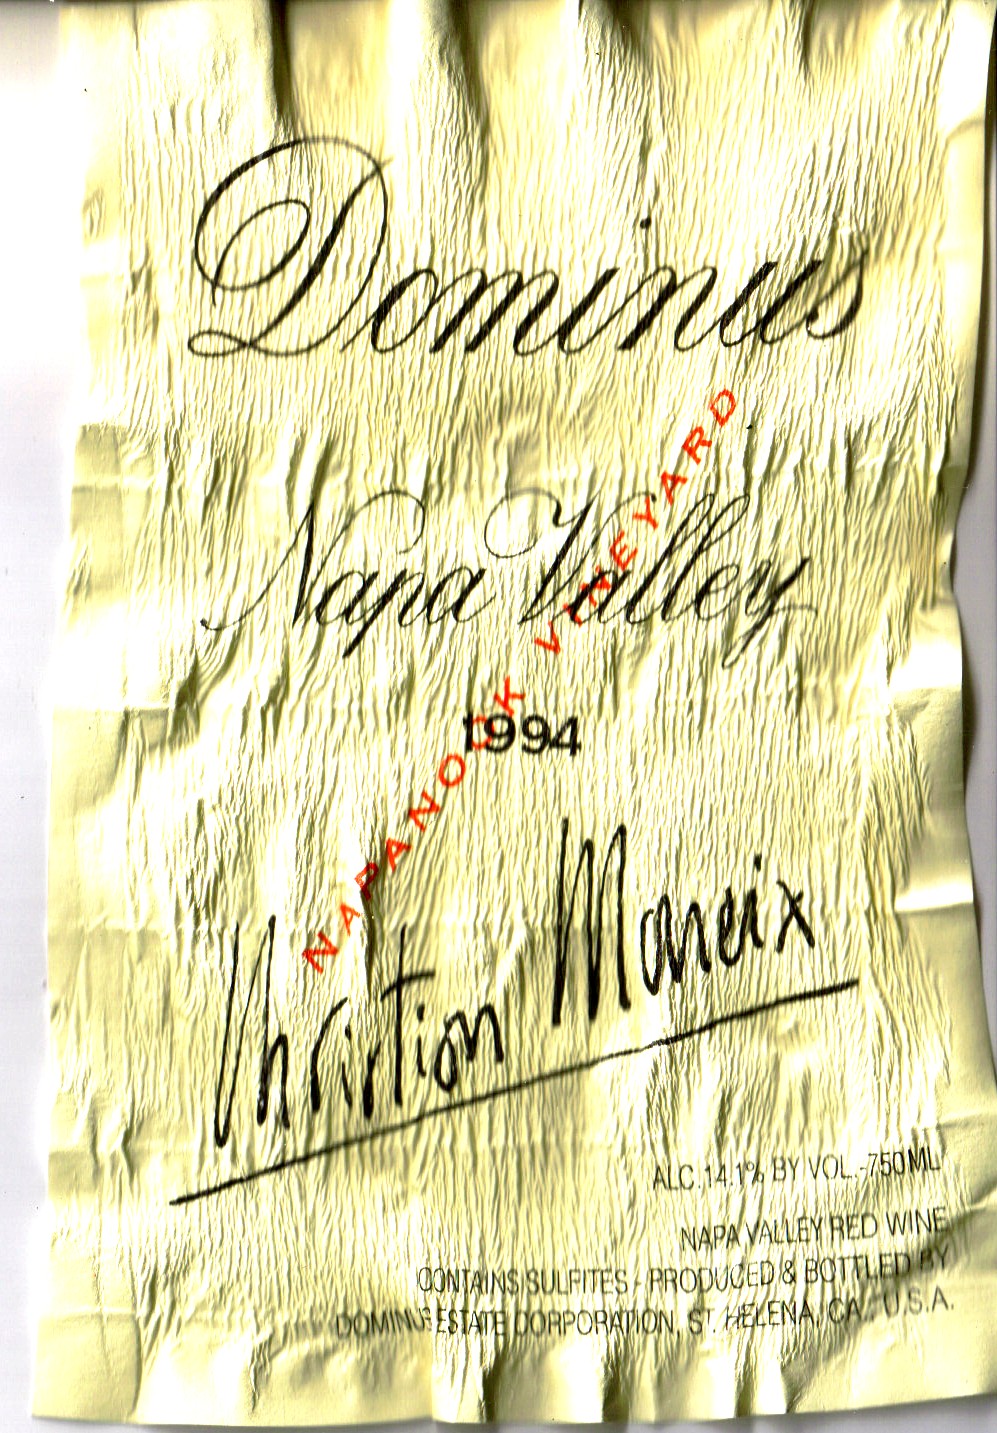 Dominus
Napa Valley
NAPANOOK VINEYARD
1994
Christian Moueix
ALC.14.1% BY VOL.-750ML
NAPA VALLEY RED WINE
CONTAINS SULFITES - PRODUCED & BOTTLED BY
DOMINUS ESTATE CORPORATION, ST. HELENA, CA., U.S.A.